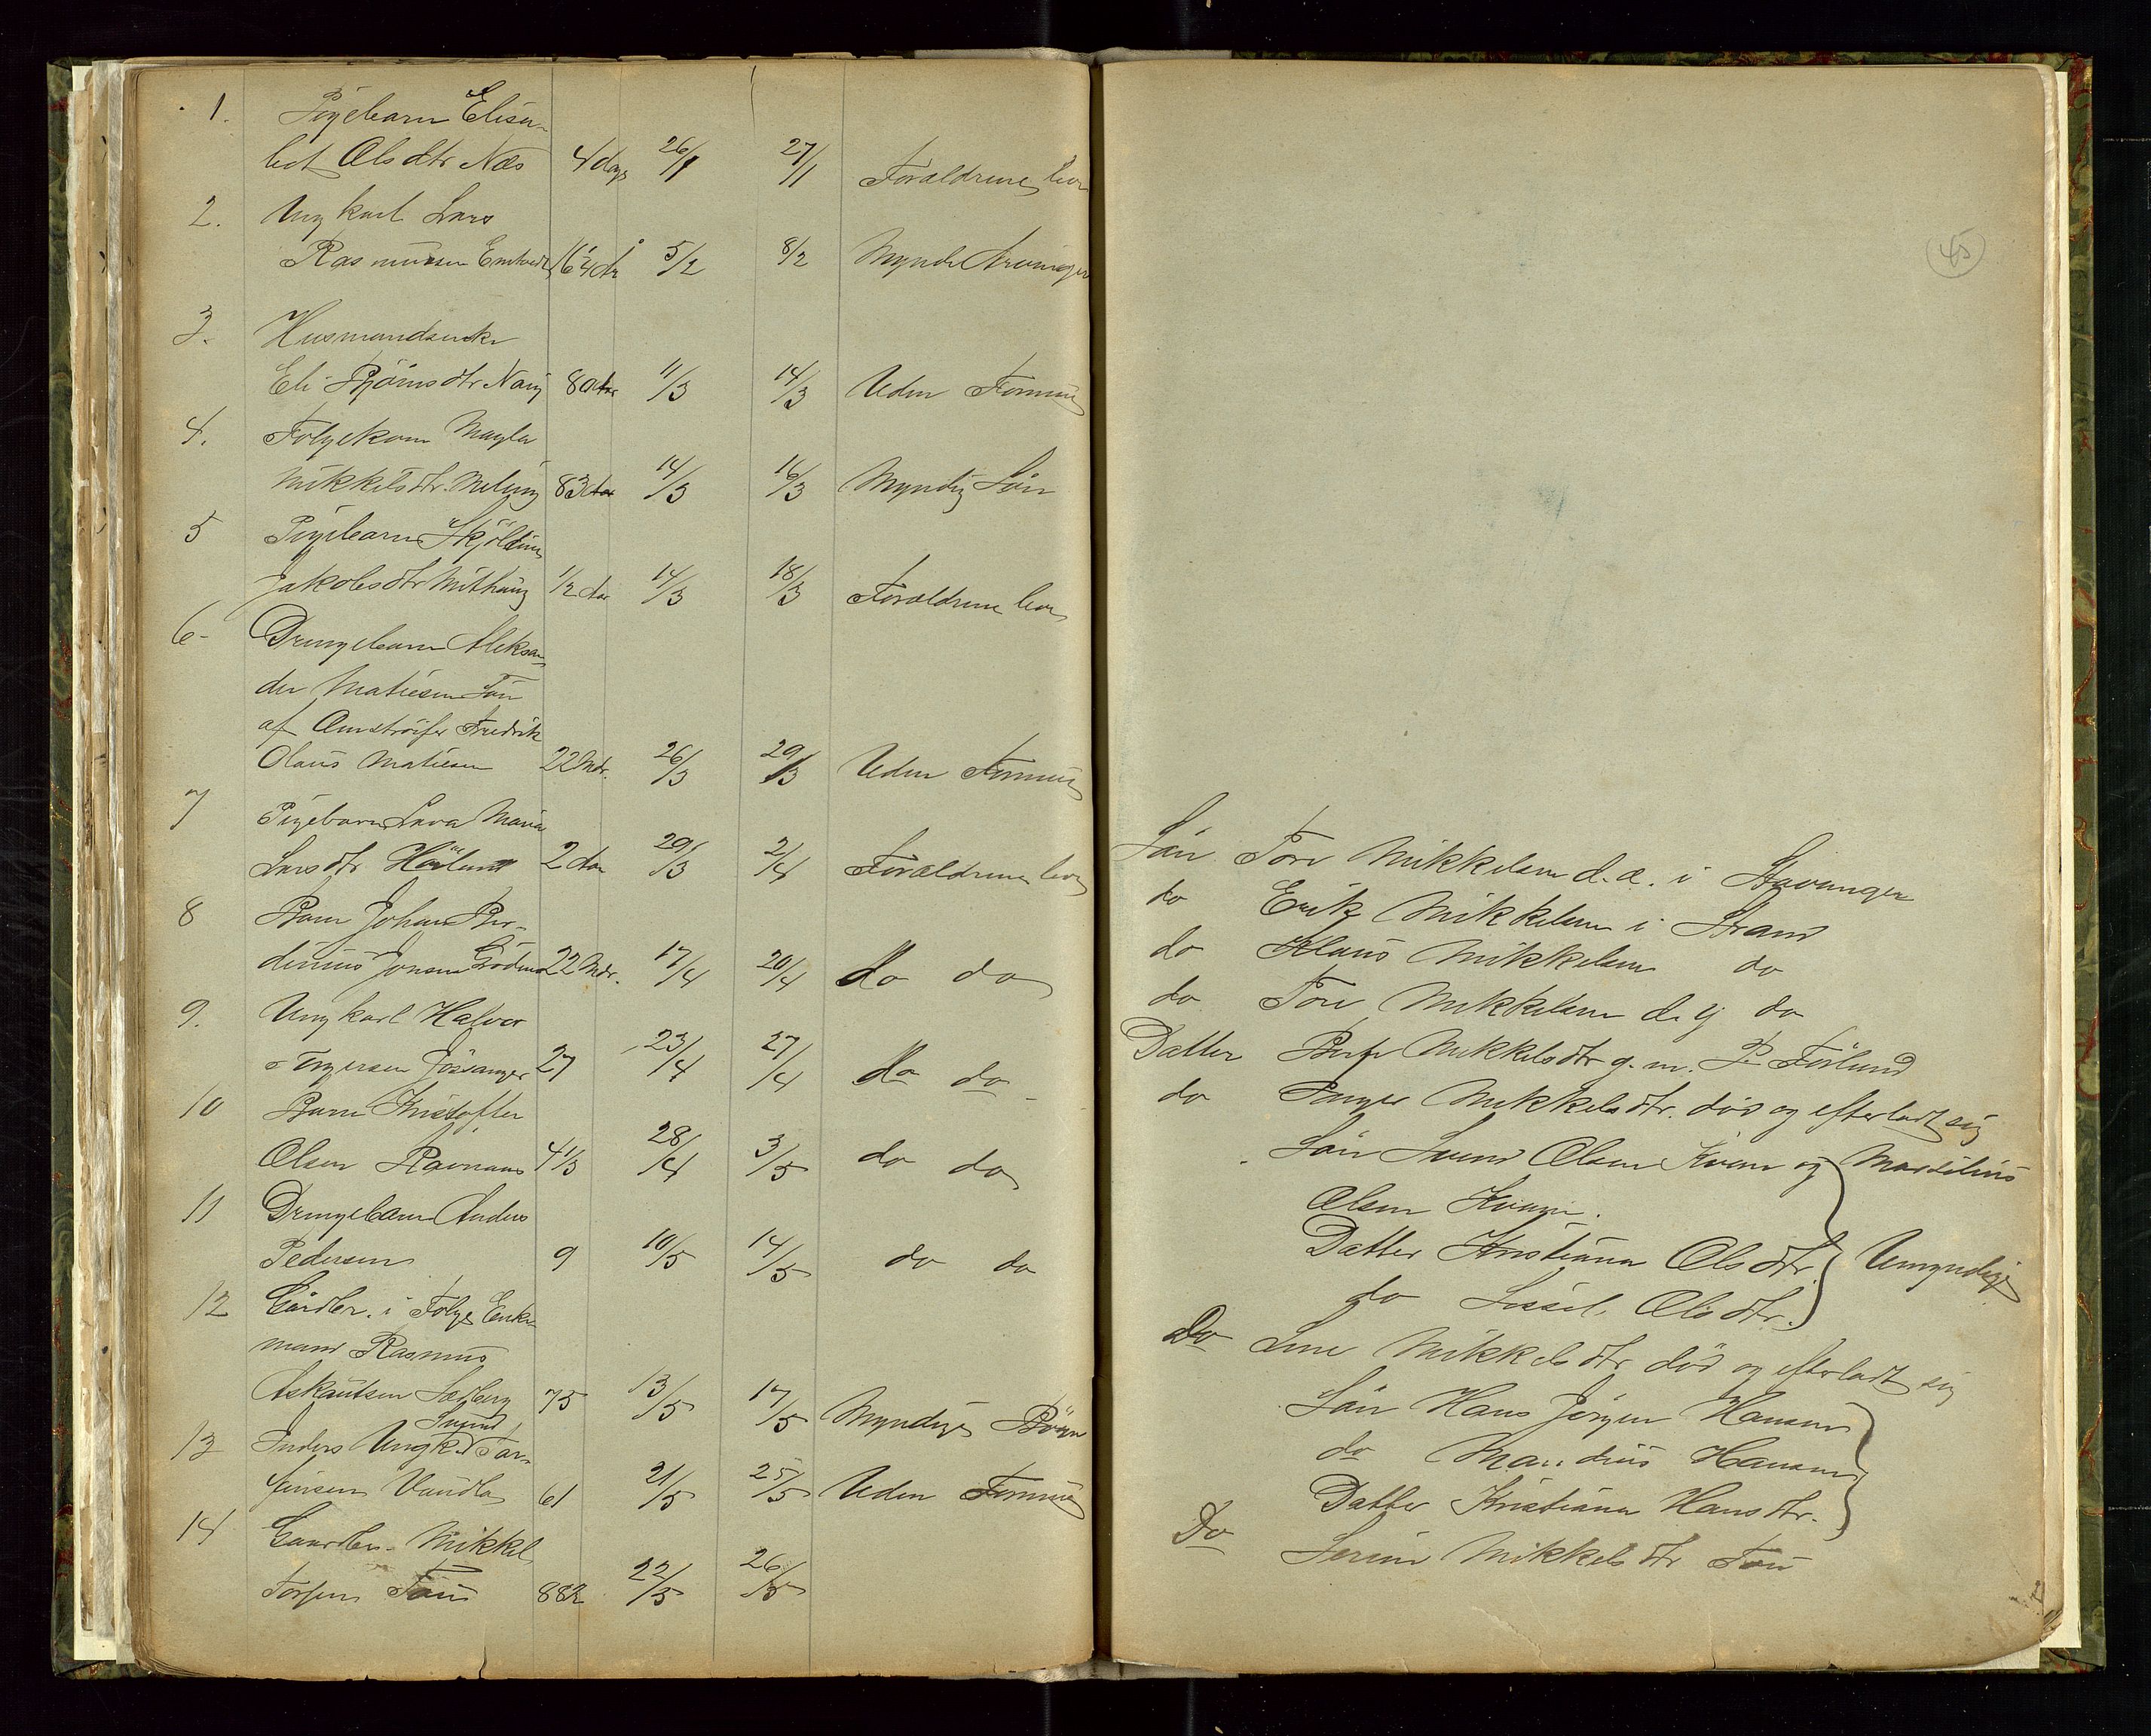 1. Pigebarn Elisa-
bet Olsdtr Næs 4 dage 26/1 27/1 Forældrene lever
2. Ungkarl Lars
Rasmussen 16 1/4 Aar 5/2 8/2 Myndr Arvinger
3. Husmandsenke
Eli Bjørnsdtr Nag 80 Aar 11/3 14/3 Uden Formue
4. Følgekone Magla
Mikkelsdtr. Meling 83 Aar 14/3 16/3 Myndig Søn
5 Pigebarn
Jakobsdtr 1/2 Aar 14/3 18/3 Forældrene lever
6- Drengebarn Aleksan-
der Matiesen Søn
af Fredrik
Olaus Matiesen 22 Mdr. 26/3 29/3 Uden Formue
7 Pigebarn Lava Maria
Larsdtr 2 Aar 29/3 2/4 Forældrene lever
8 Barn Johan Ber-
dinius Jonsen 22 Mdr. 17/4 20/4 do do
9. Ungkarl Halvor
Jøssanger 27 23/4 27/4 do do
10 Barn Kristoffer
Olsen Ravnaas 4 1/3 28/4 3/5 do do
11 Drengebarn Anders
Pedersen 9 10/5 14/5 do do
12 Gårdbr. i Følge Enke-
mand Rasmus
Askautsen Sedberg 75 13/5 17/5 Myndige Børn
Svend
13 Inders Ungk. Tor-
Vaudla 61 21/5 25/5 Uden Formue
14 Gaardbr. Mikkel
Torsen Tau 88 1/2 22/5 26/5
45
Søn Tore Mikkelsen d.æ. i Stavanger
do Erik Mikkelsen i Strand
do Klaus Mikkelsen do
do Tore Mikkelsen d. y do
Datter Berte Mikkelsdtr g. m. P. Førlund
do Mikkelsdtr. død og efterladt sig
Søn Svend Olsen Kvam og Marselius
Olsen Kvam.
Datter Kristiana Olsdtr. Umyndige
do Sissel Olsdtr.
Do Line Mikkelsdtr død og efterladt sig
Søn Hans Jørgen Hansen
do Hansen
Datter Kristiana Hansdtr.
Do Serine Mikkelsdtr Tau